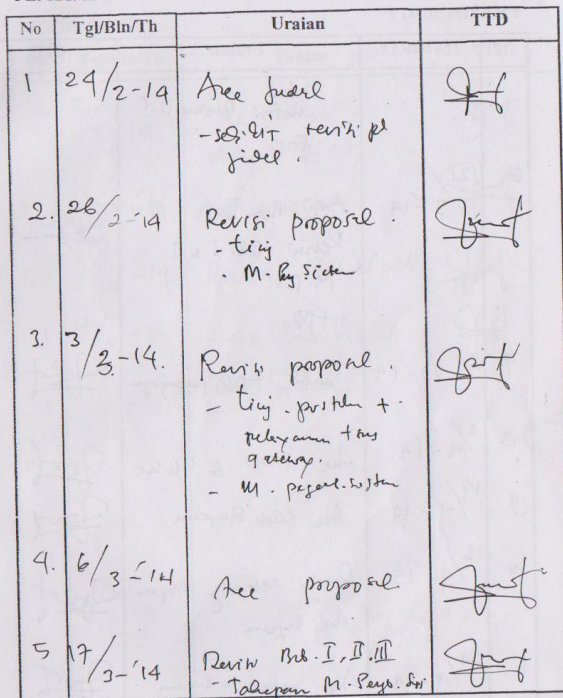 No Tgl/Bln/Th Uraian TTD
1 24/2-14 Acc judul
revisi pd
judul.
2. 26/2-'14 Revisi proposal.
- tinj
- M. Peng Sistem
3. 3/3-14. Revisi proposal
- tinj. pustaka +
pelayanan + sms
gateway.
- M. pengemb. sistem
4. 6/3-'14 Acc proposal
5 17/3-'14 Revisi Bab. I, II, III
- Tahapan M. Peng. Sis